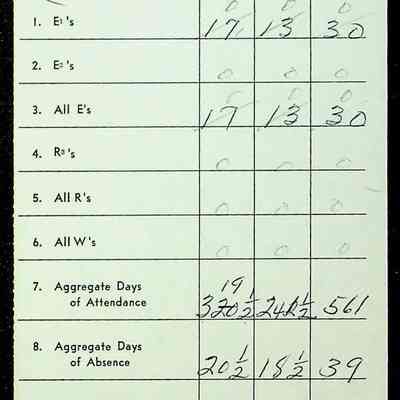 0 0 0
1. E¹'s 17 13 30
2. E²'s 0 0 0
0 0 0
3. All E's 17 13 30
4. R³'s 0 0 0
5. All R's 0 0 0
6. All W's 0 0 0
19
7. Aggregate Days
of Attendance 320½ 241½ 561
8. Aggregate Days
of Absence 20½ 18½ 39